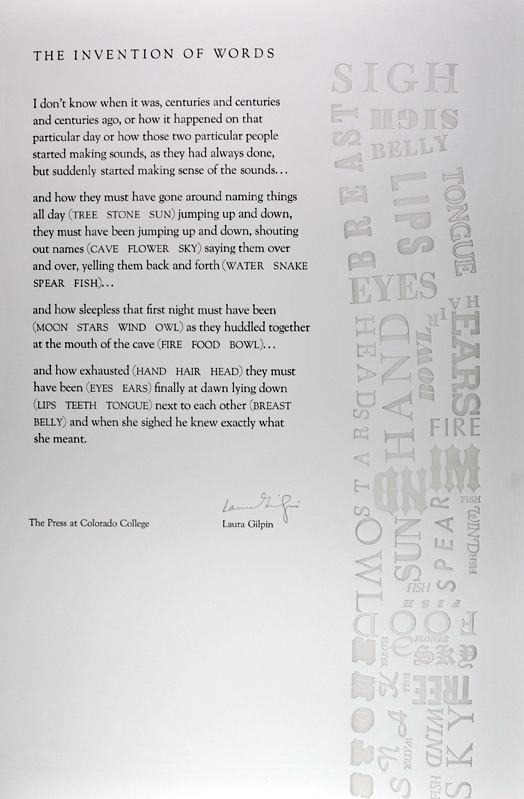 THE INVENTION OF WORDS
I don't know when it was, centuries and centuries
and centuries ago, or how it happened on that
particular day or how those two particular people
started making sounds, as they had always done,
but suddenly started making sense of the sounds...
and how they must have gone around naming things
all day (TREE STONE SUN) jumping up and down,
they must have been jumping up and down, shouting
out names (CAVE FLOWER SKY) saying them over
and over, yelling them back and forth (WATER SNAKE
SPEAR FISH)...
and how sleepless that first night must have been
(MOON STARS WIND OWL) as they huddled together
at the mouth of the cave (FIRE FOOD BOWL)...
and how exhausted (HAND HAIR HEAD) they must
have been (EYES EARS) finally at dawn lying down
(LIPS TEETH TONGUE) next to each other (BREAST
BELLY) and when she sighed he knew exactly what
she meant.
Laura Gilpin
The Press at Colorado College
Laura Gilpin
SIGH
SIGH
BELLY
BREAST
LIPS
TONGUE
EYES
HAIR
HEAD
HAND
BOWL
EARS
FIRE
STARS
OWL
SUN
SPEAR
FISH
WIND
FISH
FISH
FISH
FLOWER
FLOWER
SKY
STONE
SNAKE
TREE
WATER
WIND
FISH
SKY